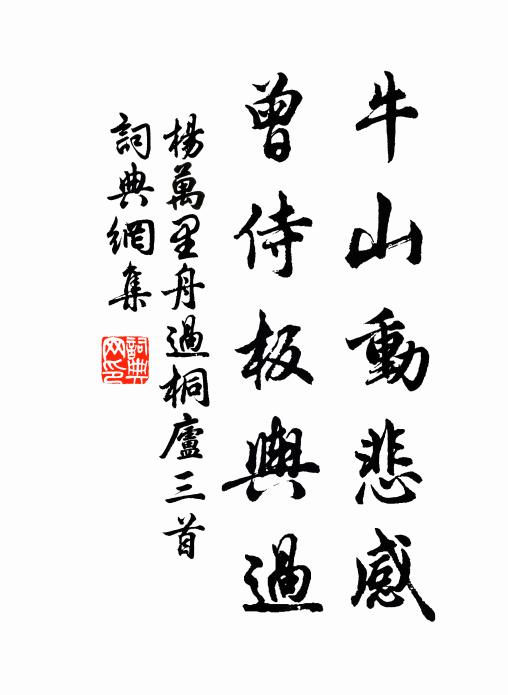 牛山動悲感
曾侍板輿過
楊萬里舟過桐廬三首
詞典網集
詞典
网印